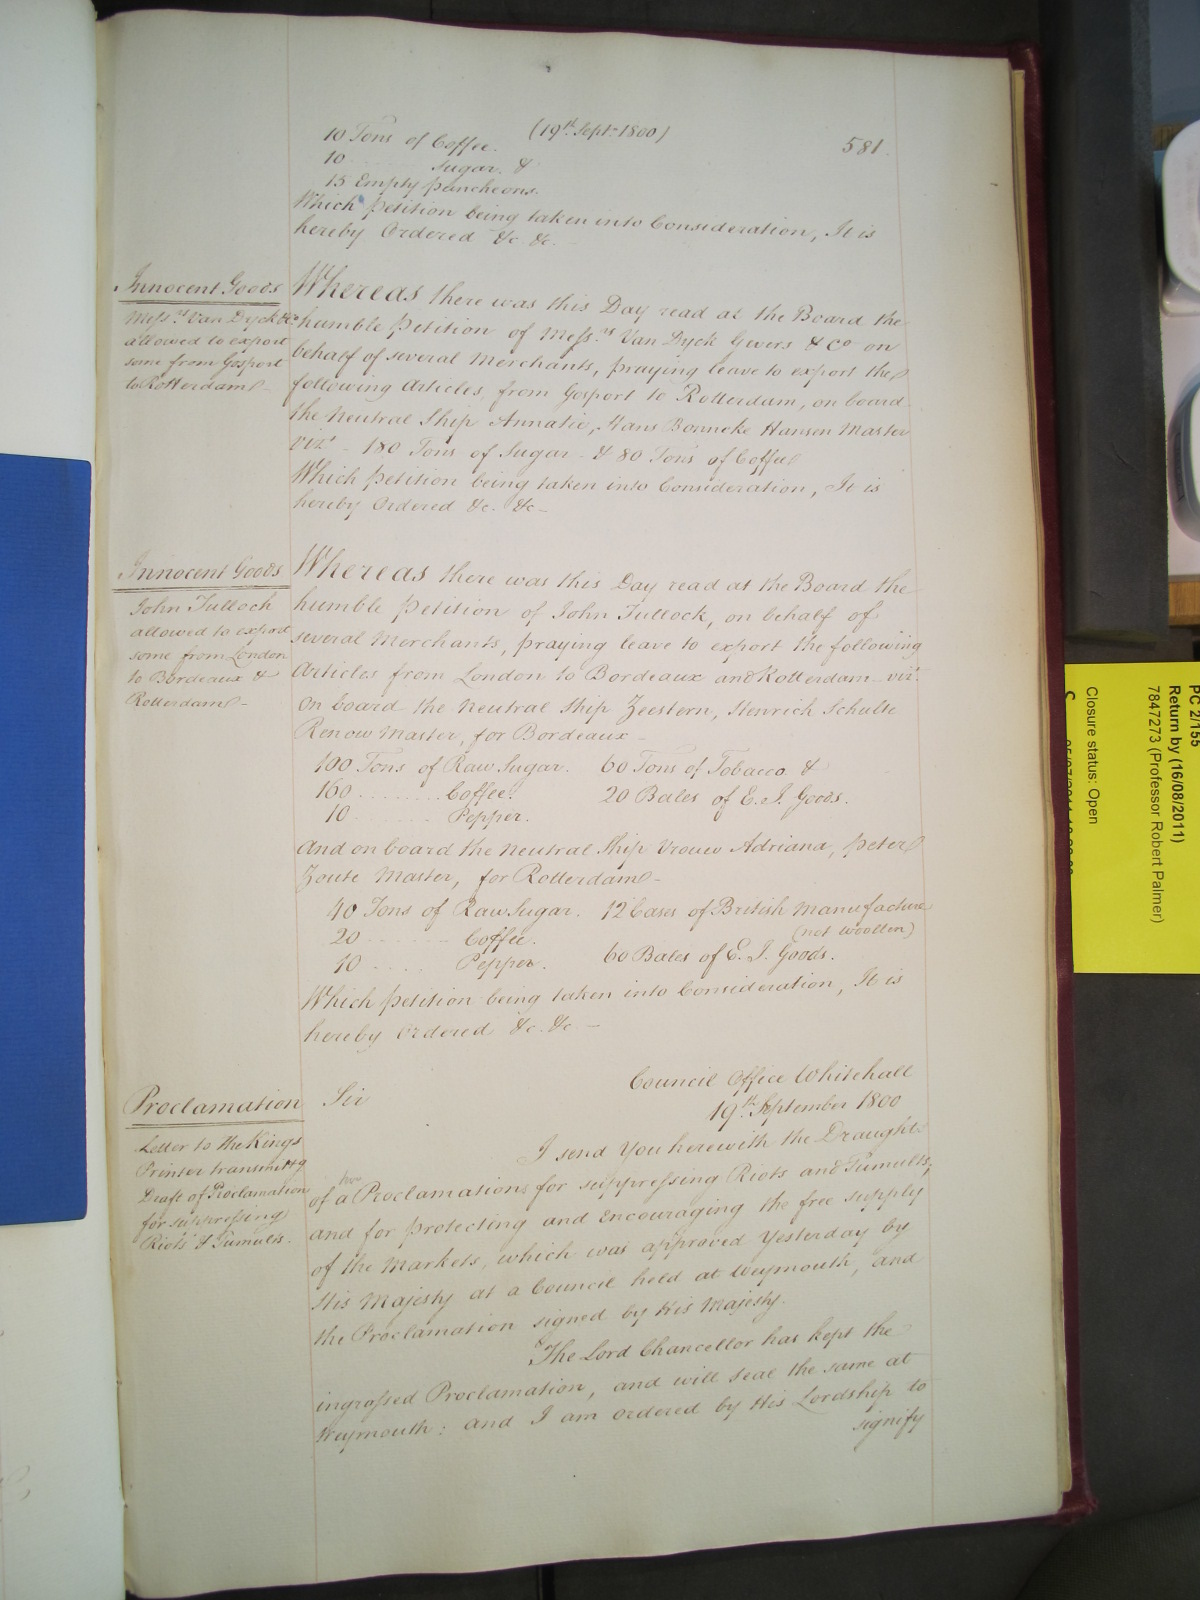 (19th. Sept. 1800)
581.
10 Tons of Coffee.
10 ........ Sugar. &
15 Empty puncheons.
Which petition being taken into Consideration, It is
hereby Ordered &c. &c. -
Innocent Goods
Messrs. Van Dyck &c
allowed to export
some from Gosport
to Rotterdam -
Whereas there was this Day read at the Board the
humble Petition of Messrs. Van Dyck Gevers & Co. on
behalf of several Merchants, praying leave to export the
following Articles, from Gosport to Rotterdam, on board
the Neutral Ship Annatie, Hans Bonneke Hansen Master
vizt. - 180 Tons of Sugar - & 80 Tons of Coffee
Which petition being taken into Consideration, It is
hereby Ordered &c. &c -
Innocent Goods
John Tulloch
allowed to export
some from London
to Bordeaux &
Rotterdam -
Whereas there was this Day read at the Board the
humble Petition of John Tullock, on behalf of
several Merchants, praying leave to export the following
Articles from London to Bordeaux and Rotterdam vizt.
On board the Neutral Ship Zeestern, Henrich Schulte
Renow Master, for Bordeaux -
100 Tons of Raw Sugar. 60 Tons of Tobacco. &
160 ........ Coffee. 20 Bales of E. I. Goods.
10 ........ Pepper.
And on board the Neutral Ship Vrouw Adriana, Peter
Zoute Master, for Rotterdam -
40 Tons of Raw Sugar. 12 Cases of British Manufacture
(not woollen)
20 ........ Coffee.
10 ..... Pepper. 60 Bales of E. I. Goods.
Which petition being taken into Consideration, It is
hereby Ordered &c. &c -
Council Office Whitehall
19th. September 1800
Proclamation
Letter to the Kings
Printer transmittg
Draft of Proclamation
for suppressing
Riots & Tumults.
Sir
I send You herewith the Draught
of a Proclamations for suppressing Riots and Tumults,
and for protecting and Encouraging the free supply
of the Markets, which was approved Yesterday by
His Majesty at a Council held at Weymouth, and
the Proclamation signed by His Majesty.
The Lord Chancellor has kept the
ingrossed Proclamation, and will seal the same at
Weymouth: and I am ordered by His Lordship to
signify
PC 2/155
Return by (16/08/2011)
7847273 (Professor Robert Palmer)
Closure status: Open